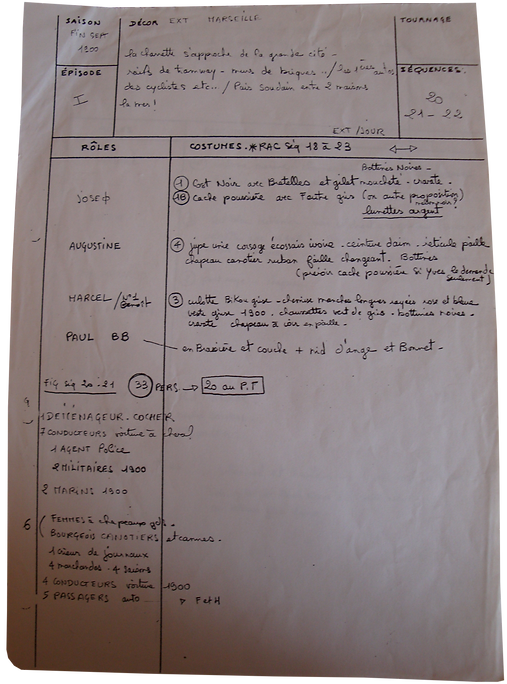 SAISON
FIN SEPT
1900
DÉCOR EXT MARSEILLE
TOURNAGE
la charrette s'approche de la grande cité -
rails de tramway - murs de briques../ les 1ères autos
des cyclistes etc... / Puis soudain entre 2 maisons
la mer!
ÉPISODE
I
SÉQUENCES.
20
21-22
EXT/JOUR
RÔLES
COSTUMES. * RAC Séq 18 à 23
Bottines Noires -
JOSEPH
1 Cost Noir avec Bretelles et gilet moucheté - cravate.
1B Cache poussière avec Feutre gris (ou autre proposition)
lunettes argent
AUGUSTINE
4 jupe unie corsage écossais ivoire - ceinture daim - réticule paille
chapeau canotier ruban faille changeant. Bottines
(prévoir cache poussière si Yves le demande
seulement)
MARCEL / N°1 Benoit
3 culotte B.Kou grise - chemise manches longues rayées rose et bleue
veste grise 1900. chaussettes vert de gris - bottines noires -
cravate chapeau à en paille -
PAUL BB
en Brassière et couche + nid d'ange et Bonnet -
FIG Séq 20-21 33 PERS. → 20 au P.T
1 DÉMÉNAGEUR. COCHER
7 CONDUCTEURS voiture à cheval
1 AGENT Police
2 MILITAIRES 1900
2 MARINS 1900
6 ( FEMMES à chapeaux
BOURGEOIS CANOTIERS et cannes -
1 crieur de journaux
4 marchandes -
4 CONDUCTEURS voiture 1900
5 PASSAGERS auto F et H